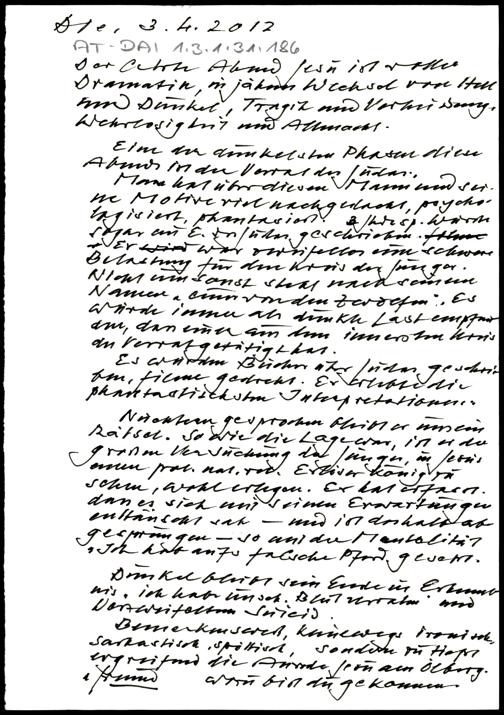 Die, 3.4.2012
AT-DAI 1.3.1.31.186
Der letzte Abend Jesu ist voller
Dramatik, in jähem Wechsel von Hell
und Dunkel, Tragik und Verheissung,
Wehrlosigkeit und Allmacht.
Eine der dunkelsten Phasen dieses
Abends ist der Verrat des Judas.
Man hat über diesen Mann und sei-
ne Motive viel nachgedacht, psycho-
logisiert, phantasiert. wurde
sogar ein E. des Judas geschrieben.
Er war zweifellos eine schwere
Belastung für den Kreis der Jünger.
Nicht umsonst steht nach seinem
Namen "einer von den Zwölfen". Es
würde immer als dunkle Last empfun-
den, dass einer aus dem innersten Kreis
den Verrat getätigt hat.
Es wurden Bücher über Judas geschrie-
ben, Filme gedreht. Er erlebte die
phantastischsten Interpretationen.
Nüchtern gesprochen bleibt er uns ein
Rätsel. So wie die Lage war, ist er der
großen Versuchung der Jünger, in Jesus
einen pol. nat. rel. König zu
sehen, wohl erlegen. Er hat erfasst,
dass er sich mit seinen Erwartungen
enttäuscht sah – und ist deshalb ab-
gesprungen – so mit der Mentalität
"Ich hab aufs falsche Pferd gesetzt.
Dunkel bleibt sein Ende in Erkennt-
nis "ich habe unsch. Blut verraten" und
verzweifeltem Suicid.
Bemerkenswert, keineswegs ironisch,
sarkastisch, spöttisch, sondern zutiefst
ergreifend die Anrede Jesu am Ölberg.
"Freund wozu bist du gekommen